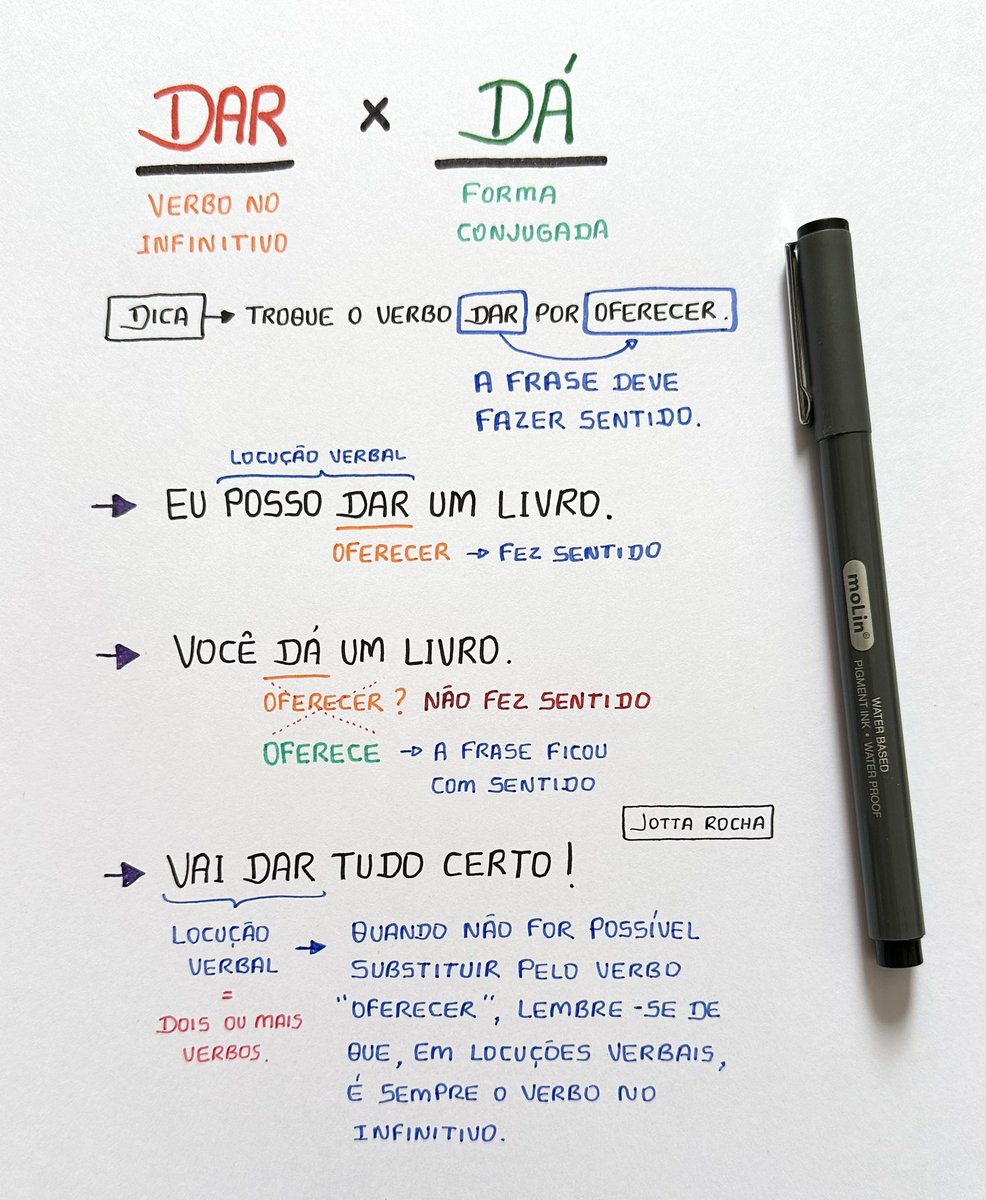 DAR x DÁ
VERBO NO
INFINITIVO
FORMA
CONJUGADA
DICA → TROQUE O VERBO DAR POR OFERECER.
A FRASE DEVE
FAZER SENTIDO.
LOCUÇÃO VERBAL
→ EU POSSO DAR UM LIVRO.
OFERECER → FEZ SENTIDO
→ VOCÊ DÁ UM LIVRO.
OFERECER? NÃO FEZ SENTIDO
OFERECE → A FRASE FICOU
COM SENTIDO
JOTTA ROCHA
→ VAI DAR TUDO CERTO!
LOCUÇÃO
VERBAL
=
DOIS OU MAIS
VERBOS.
→ QUANDO NÃO FOR POSSÍVEL
SUBSTITUIR PELO VERBO
"OFERECER", LEMBRE-SE DE
QUE, EM LOCUÇÕES VERBAIS,
É SEMPRE O VERBO NO
INFINITIVO.
moLin®
WATER BASED
PIGMENT INK • WATER PROOF